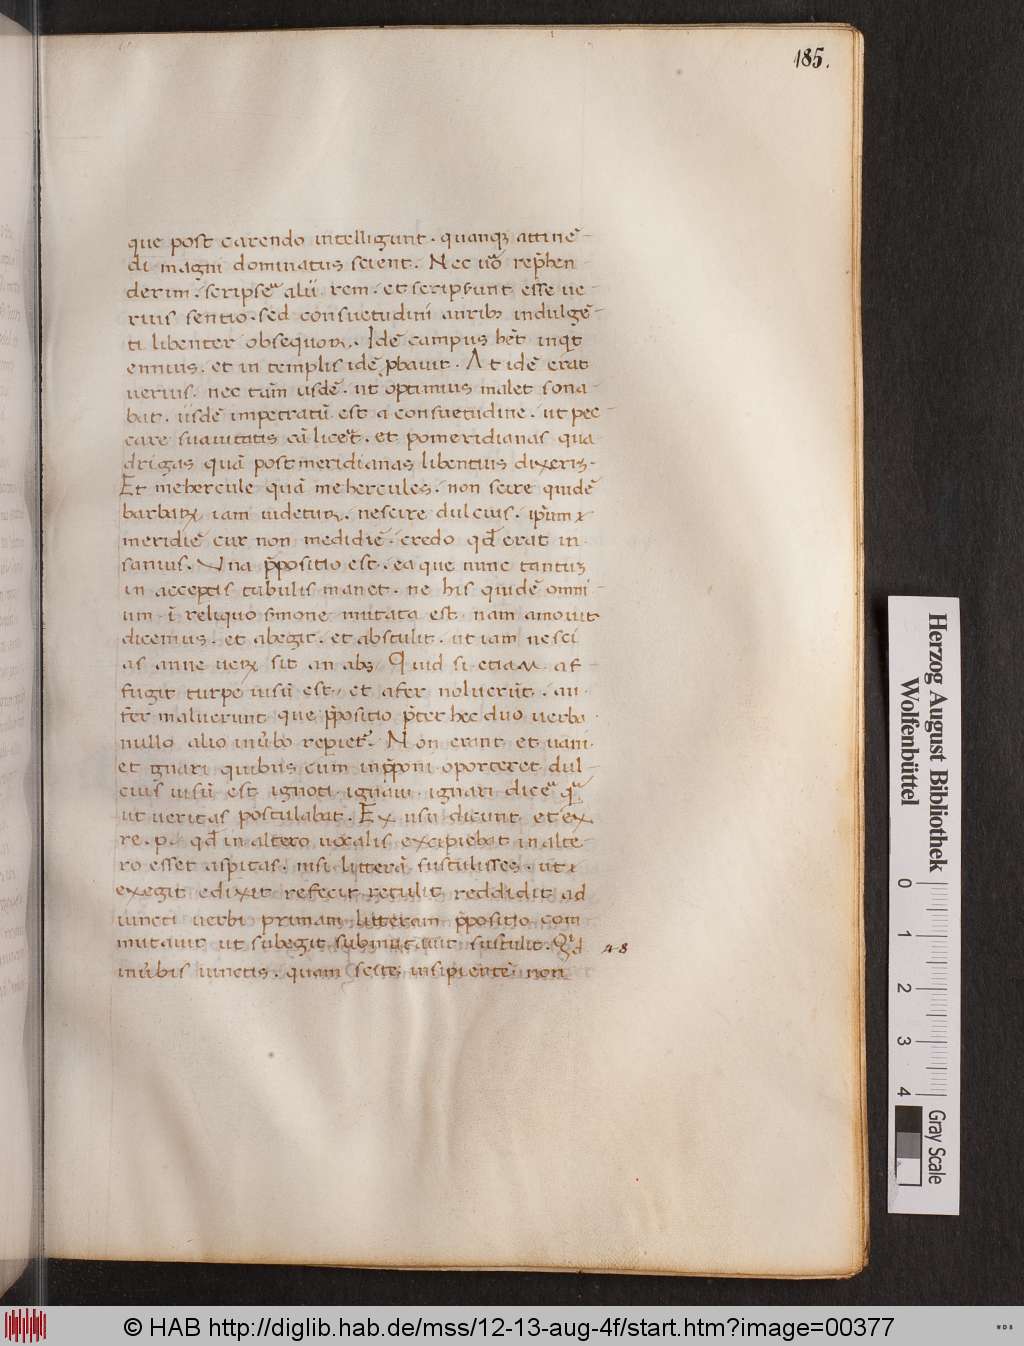 185.
que post carendo intelligunt. quanqꝫ attinē-
di magni dominatus scient. Nec uō rep̄hen
derim. scripse᷑ alii rem. et scripsunt esse ue-
rius sentio. sed consuetudini auribꝫ indulgē-
ti libenter obsequor. Idē campus hēt inqt
ennius. et in templis idē ꝓbauit. At idē erat
uerius. nec tam̄ iisdē. ut optimius malet sona-
bat. iisdē impetratū est a consuetudine. ut pec-
care suauitatis cā liceret. et pomeridianas qua-
drigas quā postmeridianas libentius dixerim.
Et mehercule quā mehercules. non scire quidē
barbarꝝ iam uidetur. nescire dulcius. ip̄um
meridiē cur non medidiē. credo qd̄ erat in-
sauius. Vna p̄positio est. ea que nunc tantum
in acceptis tabulis manet. ne his quidē omni-
um. ī reliquo sermone mutata est. nam amouit
dicemus. et abegit. et abstulit. ut iam nesci-
as anne uerꝝ sit an abs. Quid si etiam af-
fugit turpe uisū est. et afer noluerūt. au-
fer maluerunt que p̄positio p̄ter hec duo uerba.
nullo alio inūbo repiet᷑. Non erant et naui.
et gnari quibus cum inp̄poni oporteret dul-
cius uisū est ignoti. ignaui. ignari dice᷑ q̄
ut ueritas postulabat. Ex usu dicunt et ex
re. p. qd̄ in altero uocalis excipiebat in alte-
ro esset aspitas. nisi litterā sustulisses. ut
exegit edixit refecit retulit reddidit ad
iuncti uerbi primam litteram p̄positio com
mutauit ut subegit submutauit sustulit. Qd
inūbis iunctis. quam scite insipientē non
Herzog August Bibliothek
Wolfenbüttel
0 1 2 3 4
Gray Scale
© HAB http://diglib.hab.de/mss/12-13-aug-4f/start.htm?image=00377